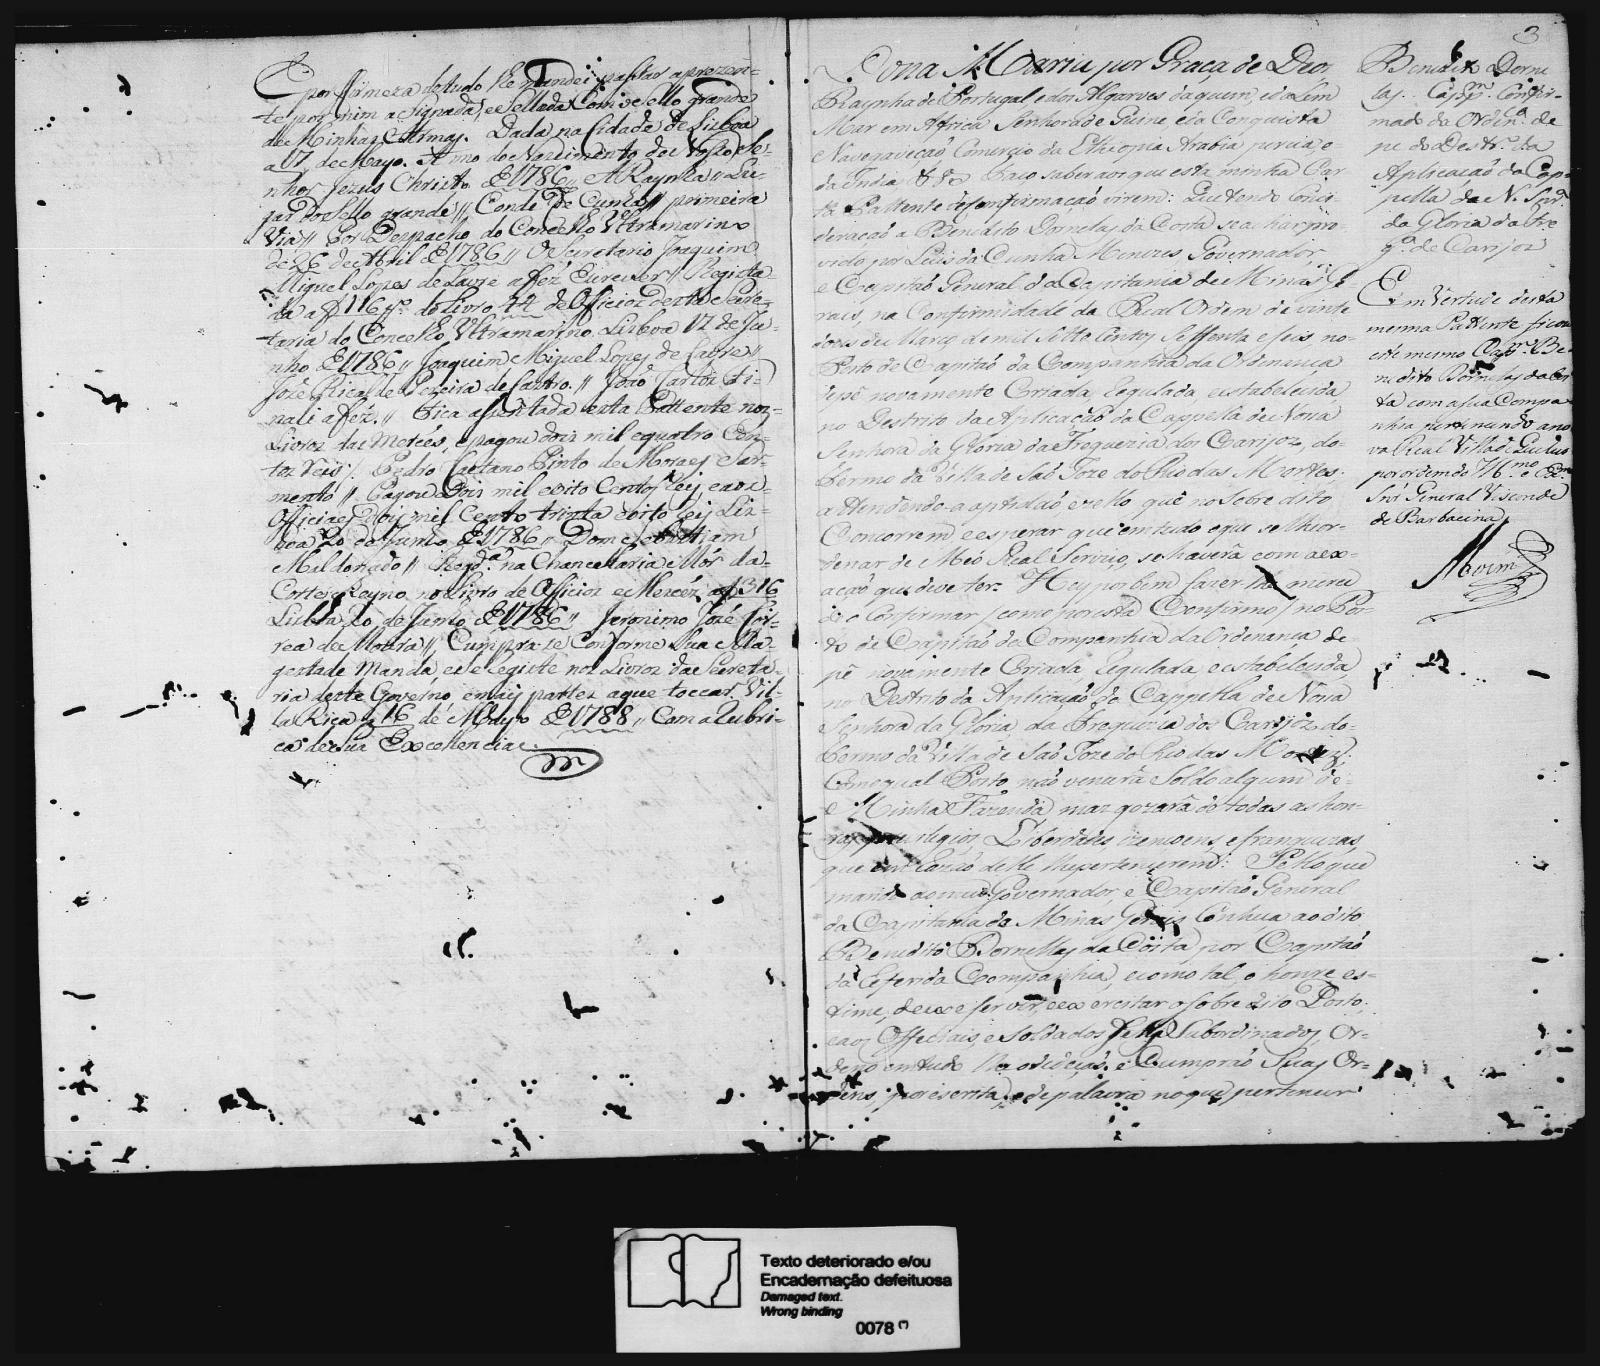 E por firmeza de tudo lhe mandei passar a prezen=
te por mim asignada, e sellada Com o sello grande
de Minhas Armas. Dada na Cidade de Lisboa
a 17, de Mayo. Anno do Nascimento de Nosso Se=
nhor Jezus Christo de 1786 // A Raynha // Lu=
gar do Sello grande // Conde de Cunha // primeira
Via // Por Despacho do Concelho Ultramarino
de 26 de Abril de 1786 // O Secretario Joaquim
Miguel Lopes de Lavre a fez Escrever // Regista
da a f 116 vo. do Livro 44 de Officios desta Secre=
taria do Concelho Ultramarino Lisboa 12 de Ju=
nho de 1786 // Joaquim Miguel Lopes de Lavre //
José Rical de Pereira de Castro. // João Carlos Fi=
nali a fez. // Fica assentada esta Pattente nos
Livros das Mercês, e pagou dois mil e quatro Cen=
tos reis // Pedro Caetano Pinto de Moraes Sar=
mento // Pagou Dois mil e oito Centos reis e aos
Officiaes Dois mil Cento e trinta e oito reis Lis=
boa 20 de Junho de 1786 // Dom Sebastiam
Maldonado // Regda. na Chancelaria Mór da
Corte e Reyno, no Livro de Officios e Mercês, a f 316
Lisboa, 20 de Junho de 1786 // Jeronimo José Cor=
rea de Moura // Cumpra-se Conforme Sua Ma=
gestade Manda, e se Registe nos Livros da Secreta=
ria deste Governo, e mais partes a que toccar. Vil=
la Rica a 16 de Mayo de 1788 // Com a Rubri=
ca de Sua Excellencia.
3
Dona Maria por Graça de Deos
Raynha de Portugal e dos Algarves daquem e dalem
Mar em Africa Senhora de Guine e da Conquista
e Navegavecaõ, Comercio da Ethiopia Arabia percia, e
da India &&ª Faço saber aos que esta minha Car
ta Pattente de confirmaçaõ virem: Que tendo Consi
deraçaõ a Benedito Dornelas da Costa se achar pro=
vido por Luis da Cunha Menezes, Governador,
e Capitaõ General da Capitania de Minas Ge
raes, na Confirmidade da Real Ordem de vinte
dous de Março de mil Sette Centos Sessenta e seis no=
Posto de Capitaõ da Companhia da Ordenança
de pé novamente Criada, regulada, e estabelecida
no Destrito da Aplicaçaõ da Cappella de Nossa
Senhora da Gloria da Freguezia dos Carijos, do=
termo da Villa de Saõ Joze do Rio das Mortes:
e Attendendo a aptidaõ e zello que no Sobre dito
Concorrem e esperar que em tudo o que se lhe or=
denar de Meo Real Servico, se haverá com a ex=
acaõ que deve ter. Hey por bem fazer lhe merce
de o Confirmar (como por esta Confirmo) no Pos=
to de Capitaõ da Companhia da Ordenança de
pé novamente Criada Regulada, e estabelecida
no Destrito da Aplicaçaõ da Cappella de Nossa
Senhora da Gloria, da Freguezia dos Carijos do=
termo da Villa de Saõ Joze do Rio das Mortes;
Com o qual Posto naõ vencerá Soldo algum de=
Minha Fazenda mas gozará de todas as hon=
ras previlegios, Liberdades izencoens, e franquezas,
que em razaõ delle lhe pertencerem: Pello que
mando ao meu Governador, e Capitaõ General
da Capitania de Minas Geraes Conheça ao dito
Benedito Dornellas da Costa por Capitaõ
da referida Companhia, e como tal, o honre es=
time, deixe servir, e exercitar o sobre dito Posto;
e aos Officiais, e Soldados Seus Subordinados, Or=
deno em tudo lhe obedeçaõ, e Cumpraõ Suas Or=
dens por escrita, e de palavra no que pertencer
Benedito Dorne
las. Cappm. Confir=
mado da Ordenª. de
pe do Destrº. da
Aplicaçaõ da Cap=
pella de N. Snrª.
da Gloria da Fre
gª. de Carijos
Em Vertude desta
mesma Pattente ficou
este mesmo Cappm. Be=
nedito Dornelas da Cos
ta com a sua Compa
nhia pertencendo a no
va Real Villa de Queluz
por ordem do Illmo. e Exmo.
Snr General Visconde
de Barbacena
Texto deteriorado e/ou
Encadernação defeituosa
Damaged text.
Wrong binding
0078 (*)